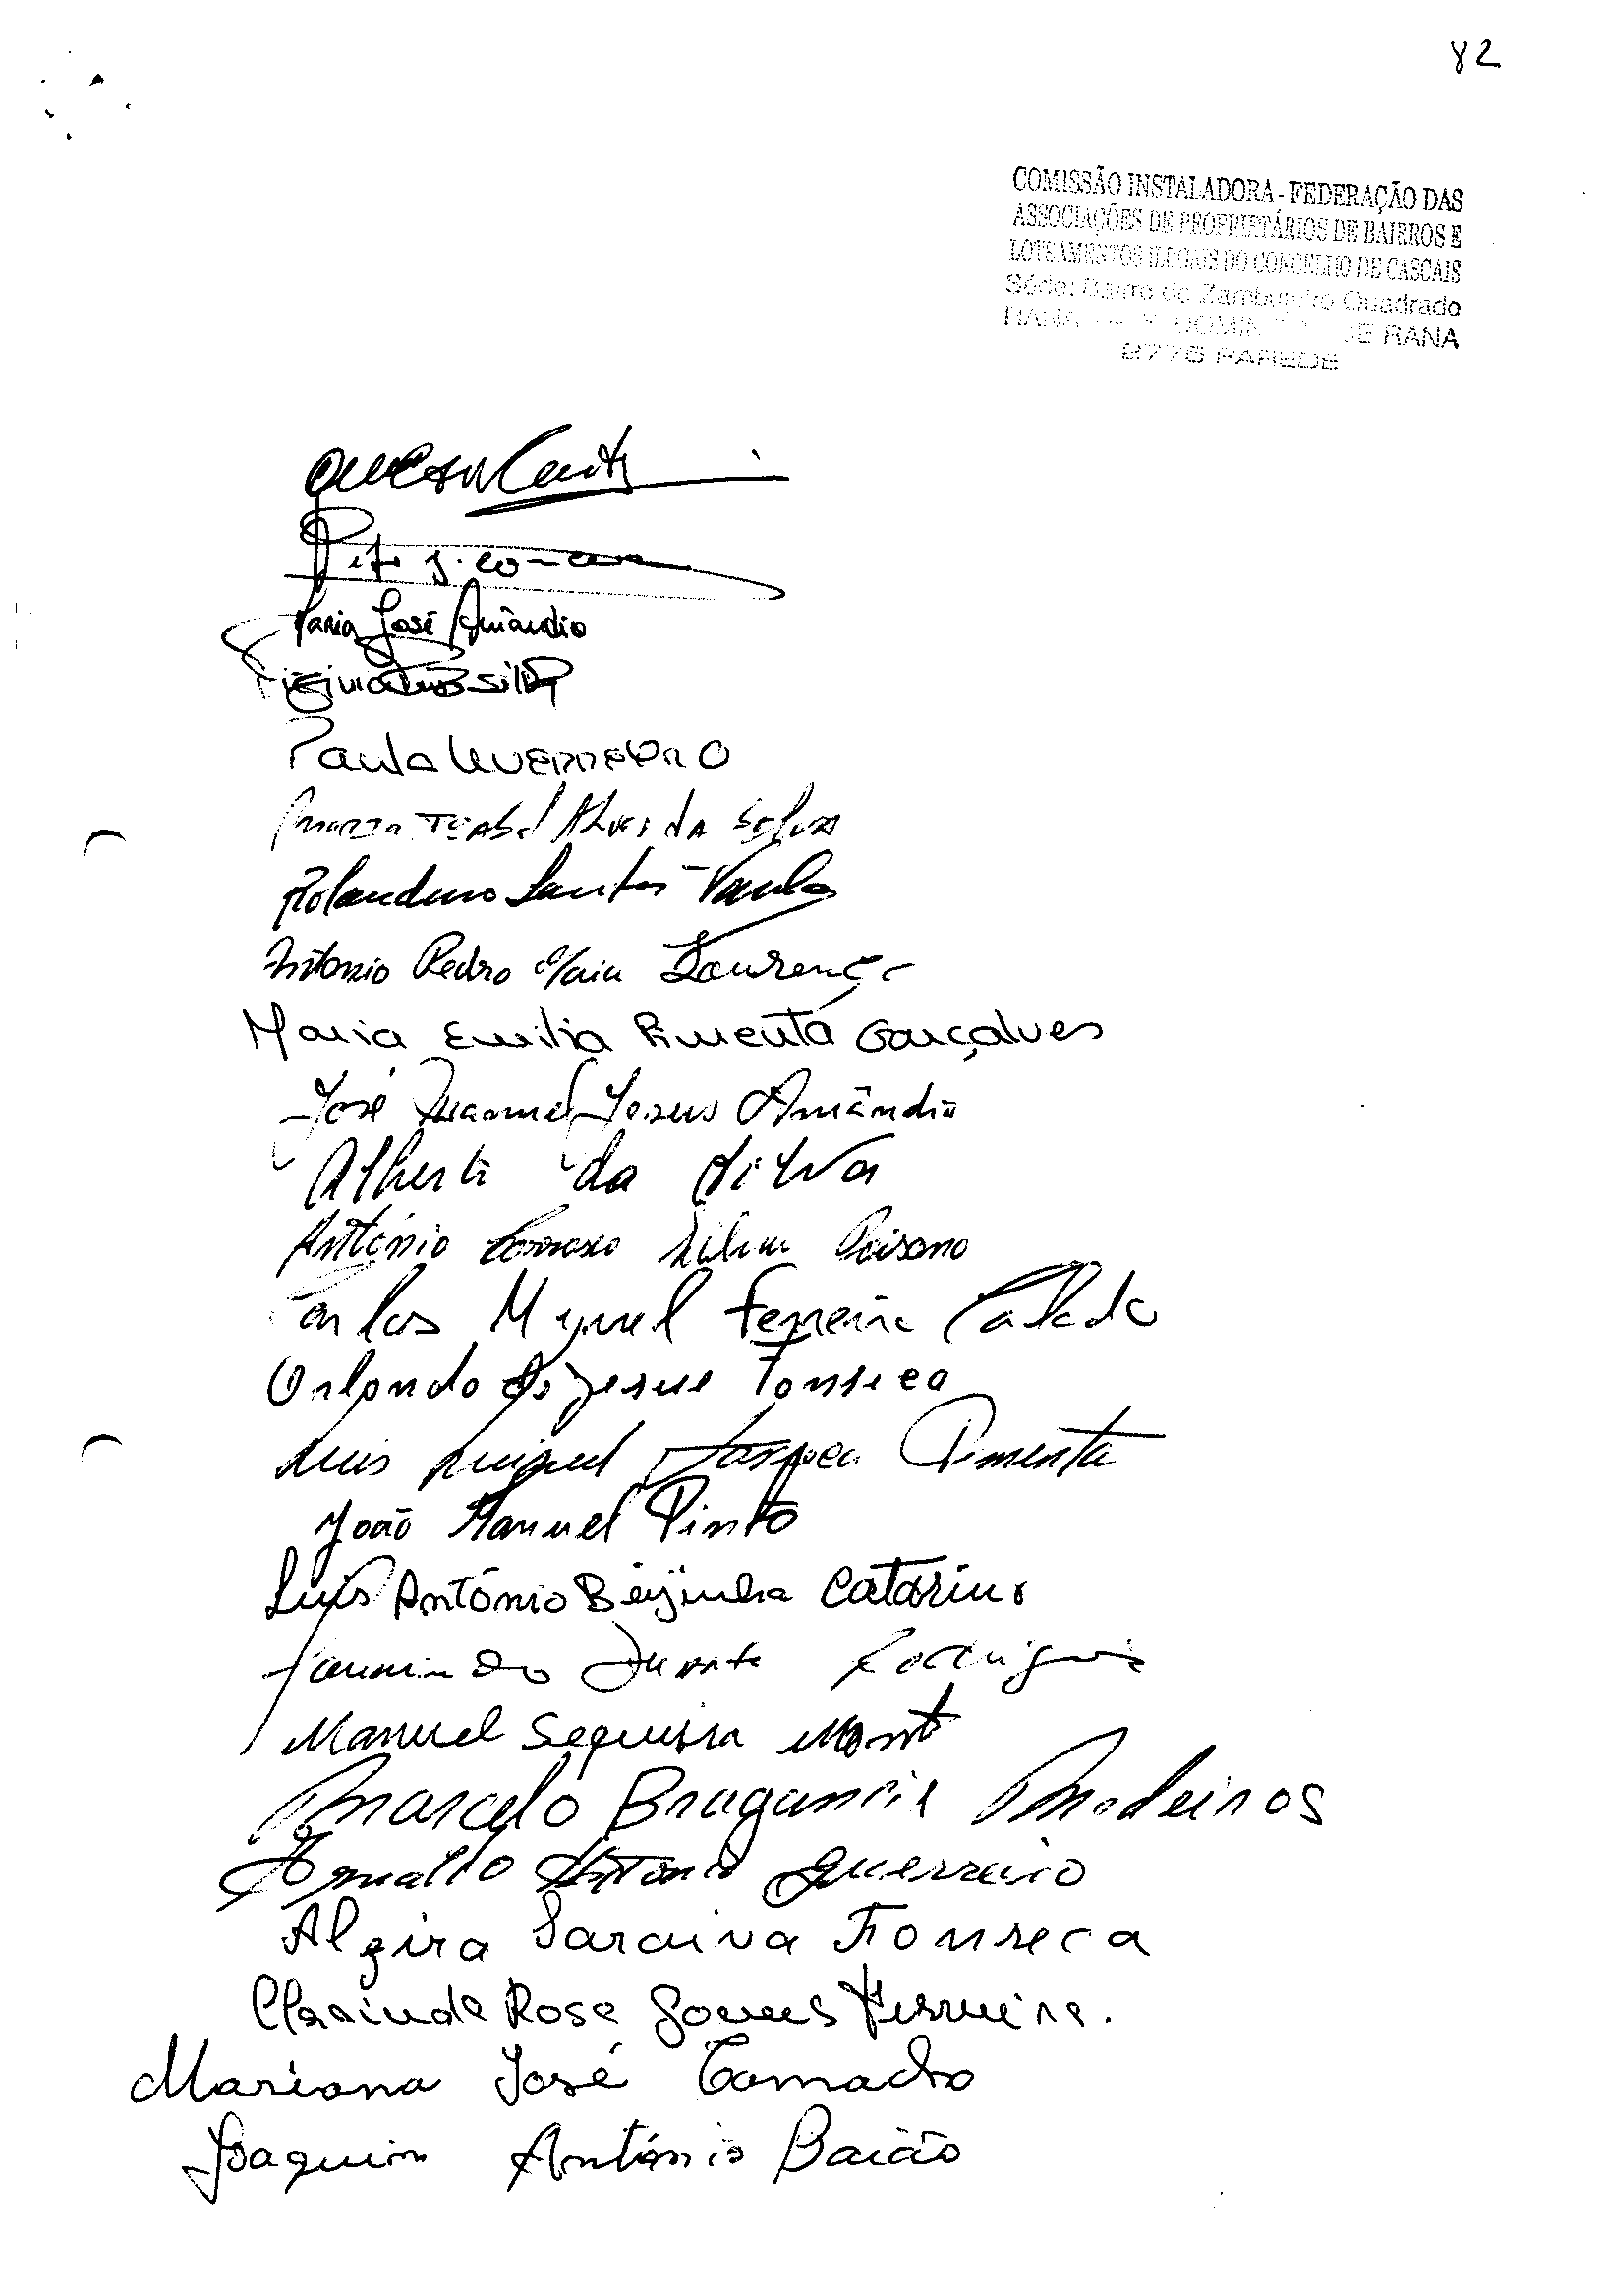 82
COMISSÃO INSTALADORA - FEDERAÇÃO DAS
ASSOCIAÇÕES DE PROPRIETÁRIOS DE BAIRROS E
LOTEAMENTOS ILEGAIS DO CONCELHO DE CASCAIS
Séde: Bairro do Zambujeiro Quadrado
RANA DOMIN DE RANA
2775 PAREDE
Maria José Amândio
Silva
Paula Guerreiro
Maria Isabel Alves da Silva
Rolandino Santos Varela
António Pedro Maia Lourenço
Maria Emilia Pimenta Gonçalves
José Manuel Jesus Amândio
Alberto da Silva
António Silva
Carlos Miguel Ferreira Calado
Orlando de Jesus Fonseca
Luis Miguel Fonseca Pimenta
João Manuel Pinto
Luis António Beijinha Catarino
Fernando Duarte Rodrigues
Manuel Sequeira
Marcelo Bragança Medeiros
António Guerreiro
Alzira Saraiva Fonseca
Clarinda Rosa Gomes Ferreira.
Mariana José Camacho
Joaquim António Baião